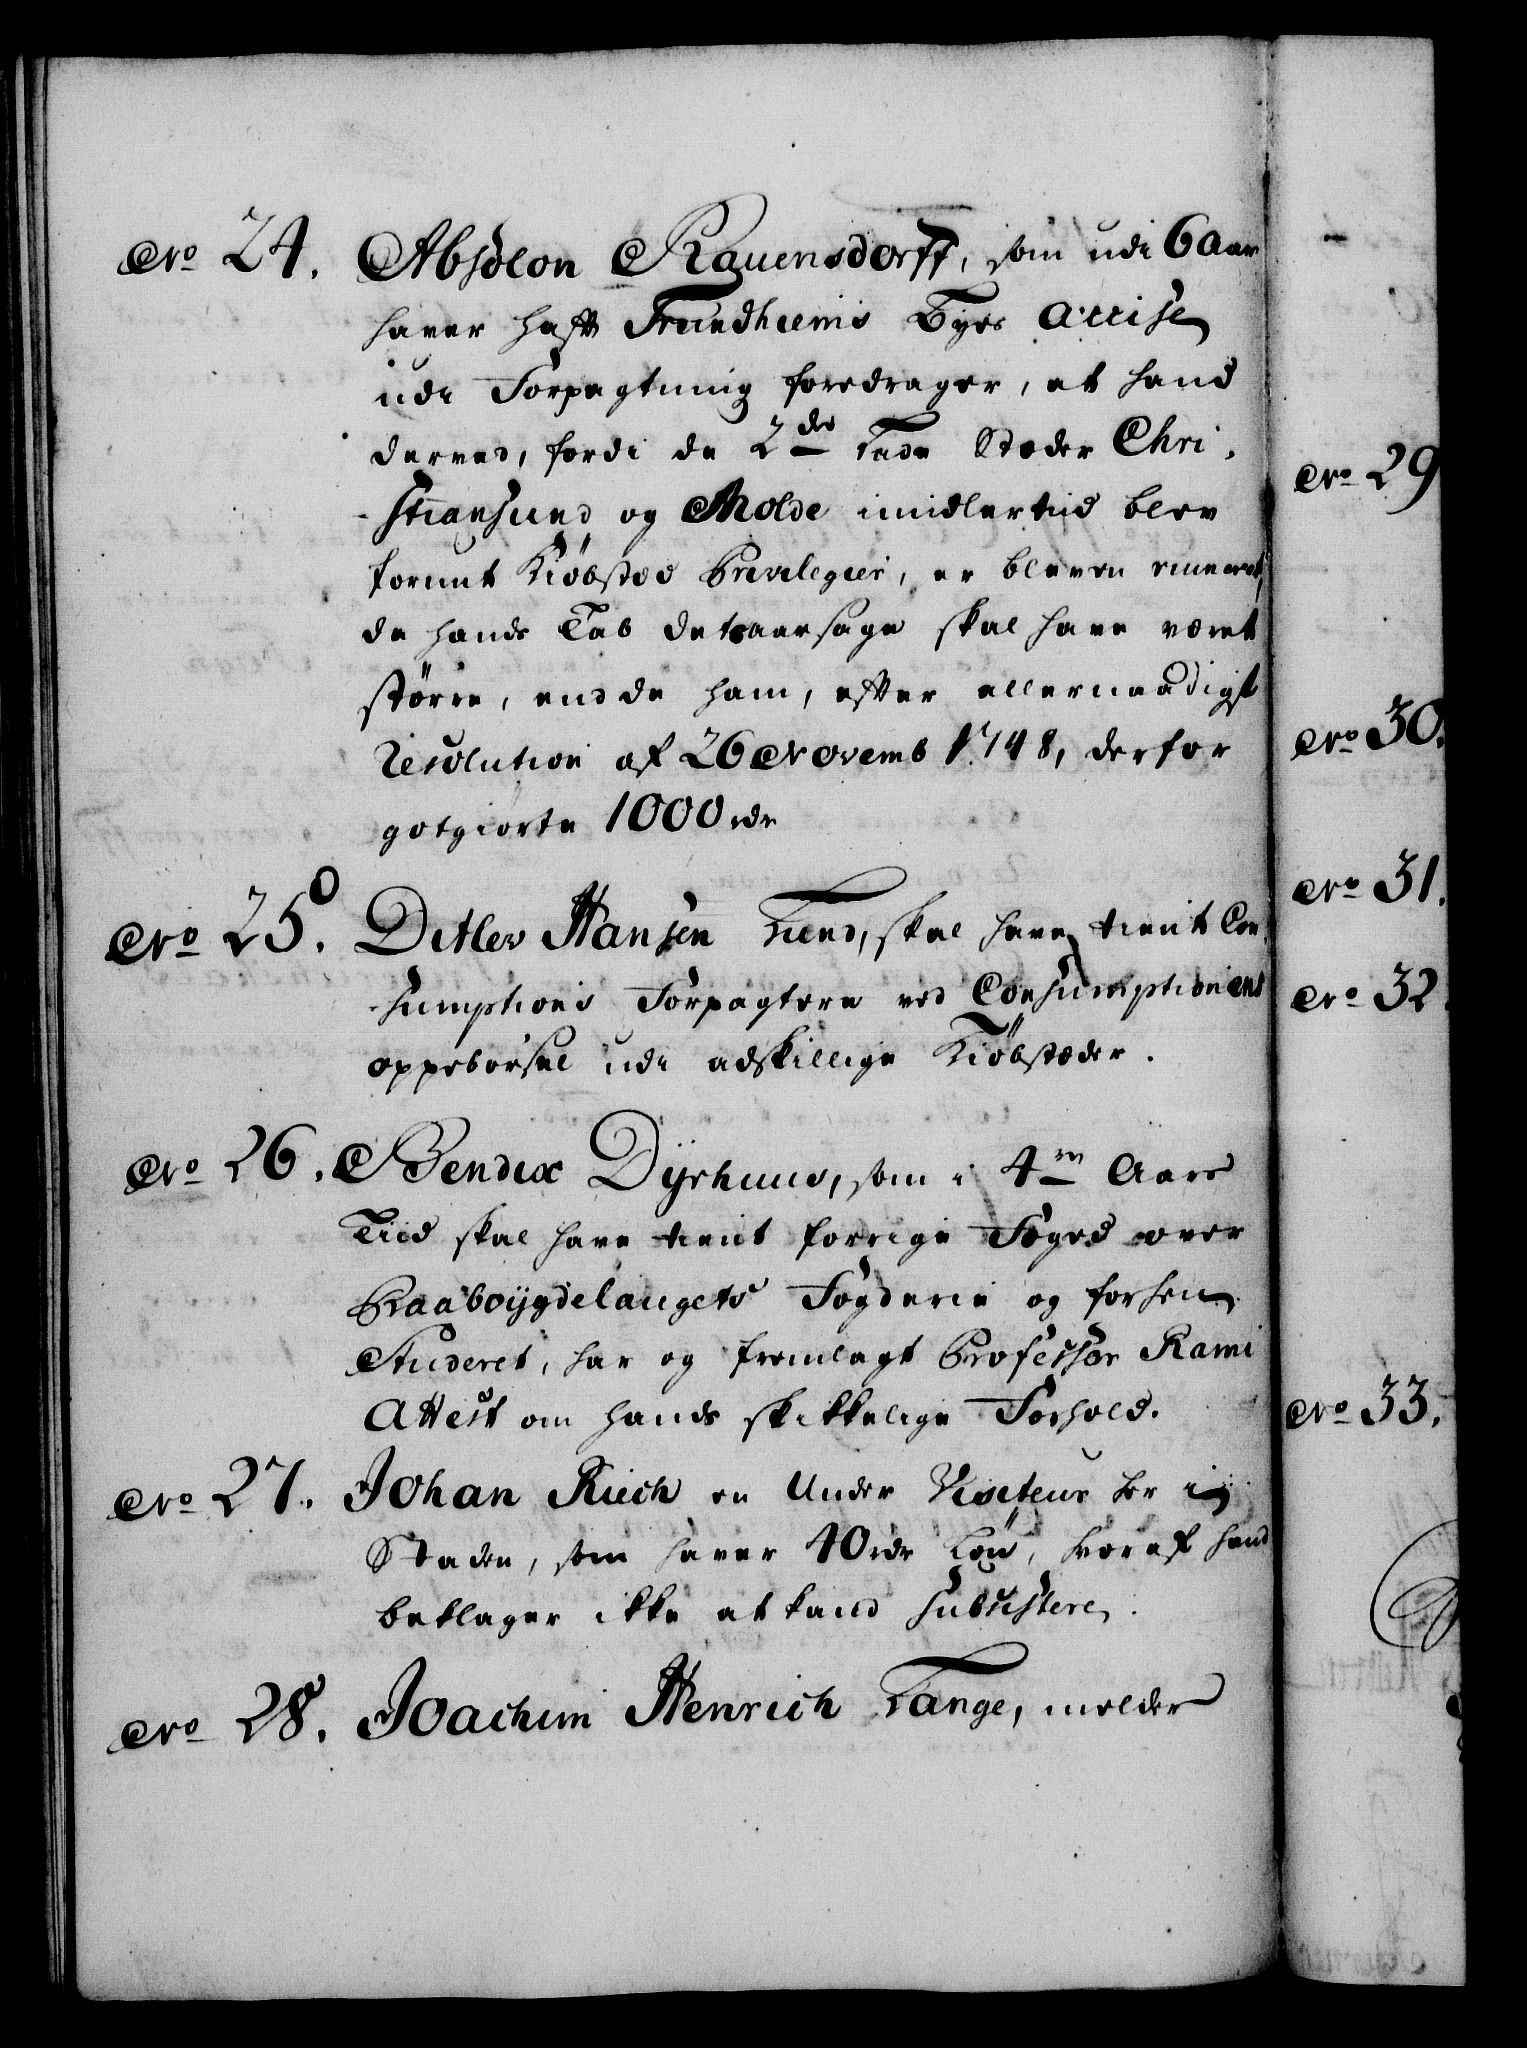 Nro 24. Absolon Rauensdorff, som udi 6 Aar
haver hafft Trundhiems Byes Accise
udi Forpagtning foredrager, at hand
derved, fordi de 2de Lade Stæder Chri-
stiansund og Molde imidlertiid blev
forunt Kiöbstæd Privilegier, er bleven ruineret,
da hands Tab detsaarsage skal have været
större, end de ham, efter allernaadigst
Resolution af 26 Novemb 1748, derfor
gotgiorte 1000 rdr
Nro 25. Ditlev Hansen Lund, skal have tient Con-
sumptions Forpagtere ved Consumptionens
oppebörsel udi adskillige Kiöbstæder.
Nro 26. Bendix Dÿrhuus, som i 4re Aars
Tiid skal have tient forrige Foged over
Raaboÿgdelaugets Fogderie og forhen
Studeret, har og fremlagt Professor Rami
Attest om hands skikkelige Forhold.
Nro 27. Johan Ruch en Under Visiteur her i
Staden, som haver 40 rdr Løn, hvoraf hand
beklager ikke at kand subsistere.
Nro 28. Joachim Henrich Lange, melder
Nro 29
Nro 30.
Nro 31.
Nro 32.
Nro 33.